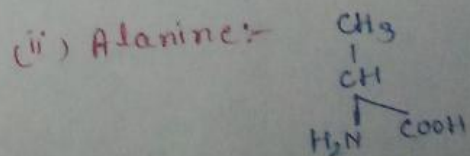 (ii) Alanine:-
CH3
CH
H2N COOH